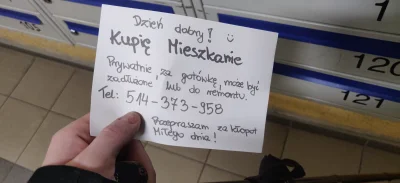 Dzień dobry! ☺
Kupię Mieszkanie
Prywatnie, za gotówkę, może być
zadłużone lub do remontu.
Tel: 514-373-958
Przepraszam za kłopot
Miłego dnia!
120